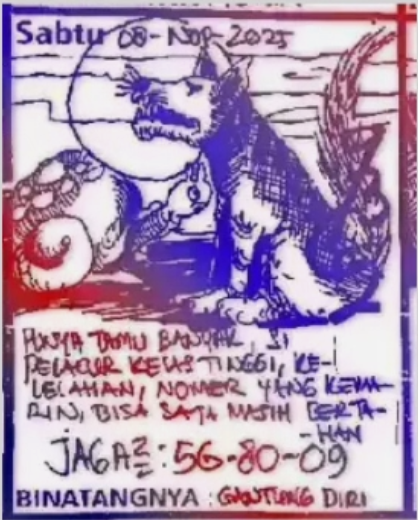 Sabtu 08-Nop-2025
PUNYA TAMU BANYAK, SI
PELACUR KELAS TINGGI, KE-
LELAHAN, NOMER YANG KEMA-
RIN, BISA SAJA MASIH BERTA-
-HAN
JAGA²=: 56-80-09
BINATANGNYA : GANTUNG DIRI